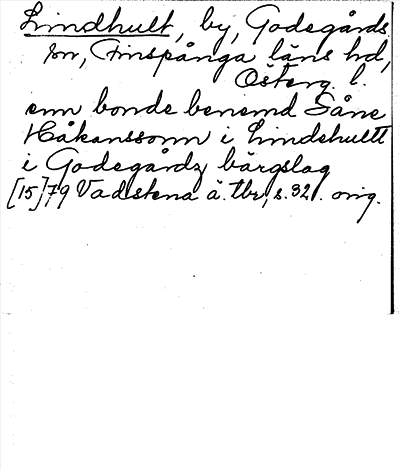 Lindhult, by, Godegårds
sn, Finspånga läns hd,
Österg. l.
enn bonde benemd Såne
Håkanssonn i Lindehultt
i Godegårdz bärgslag
[15]79 Vadstena ä. tbr, s. 32. orig.